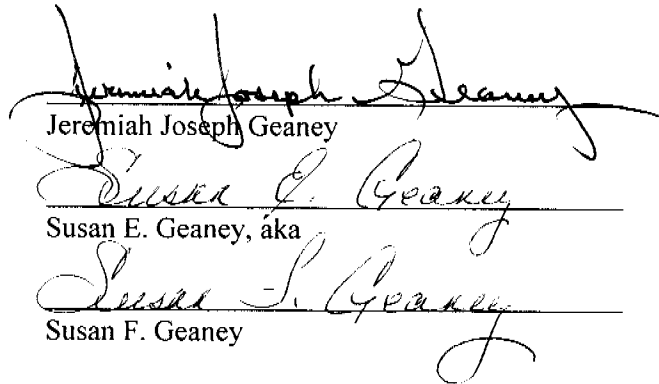 Jeremiah Joseph Geaney
Jeremiah Joseph Geaney
Susan E. Geaney
Susan E. Geaney, aka
Susan F. Geaney
Susan F. Geaney